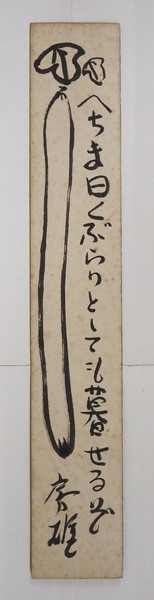 へちま曰くぶらりとしても暮せる哉
房雄